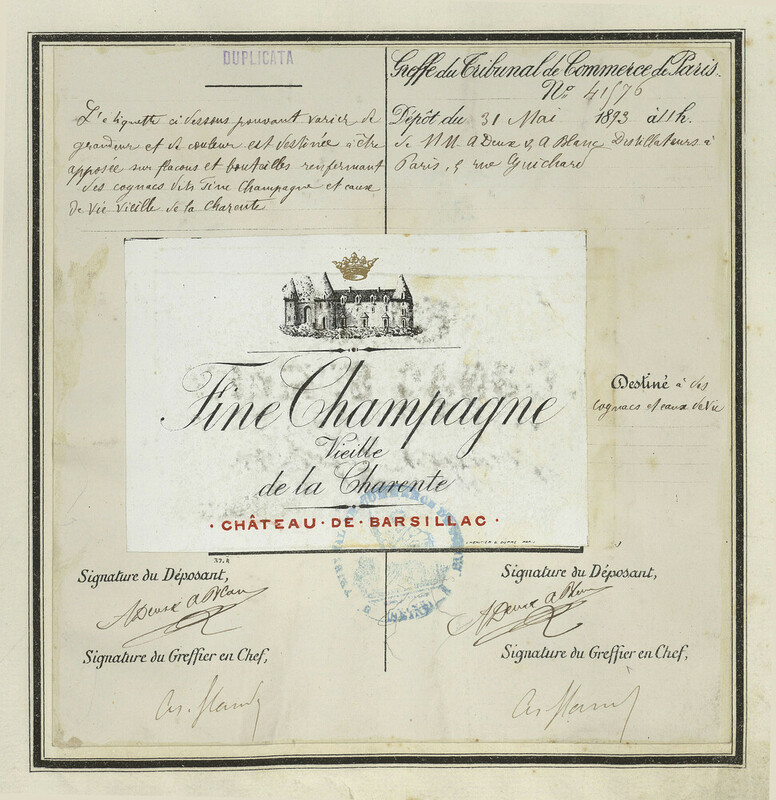 DUPLICATA
L'etiquette ci dessous pouvant varier de
grandeur et de couleur est destinée à être
apposée sur flacons et bouteilles renfermant
des cognacs dits Fine Champagne et eaux
de vie vieille de la Charente
Greffe du Tribunal de Commerce de Paris.
No 41576
Dépôt du 31 Mai 1893 à 11h.
de MM A Deux & A Blanc Distillateurs à
Paris, 5 rue Guichard
Fine Champagne
Vieille
de la Charente
· CHÂTEAU · DE · BARSILLAC ·
Destiné à des
cognacs et eaux de vie
TRIBUNAL DE COMMERCE
SEINE
Signature du Déposant,
A Deux A Blanc
Signature du Greffier en Chef,
Signature du Déposant,
A Deux A Blanc
Signature du Greffier en Chef,